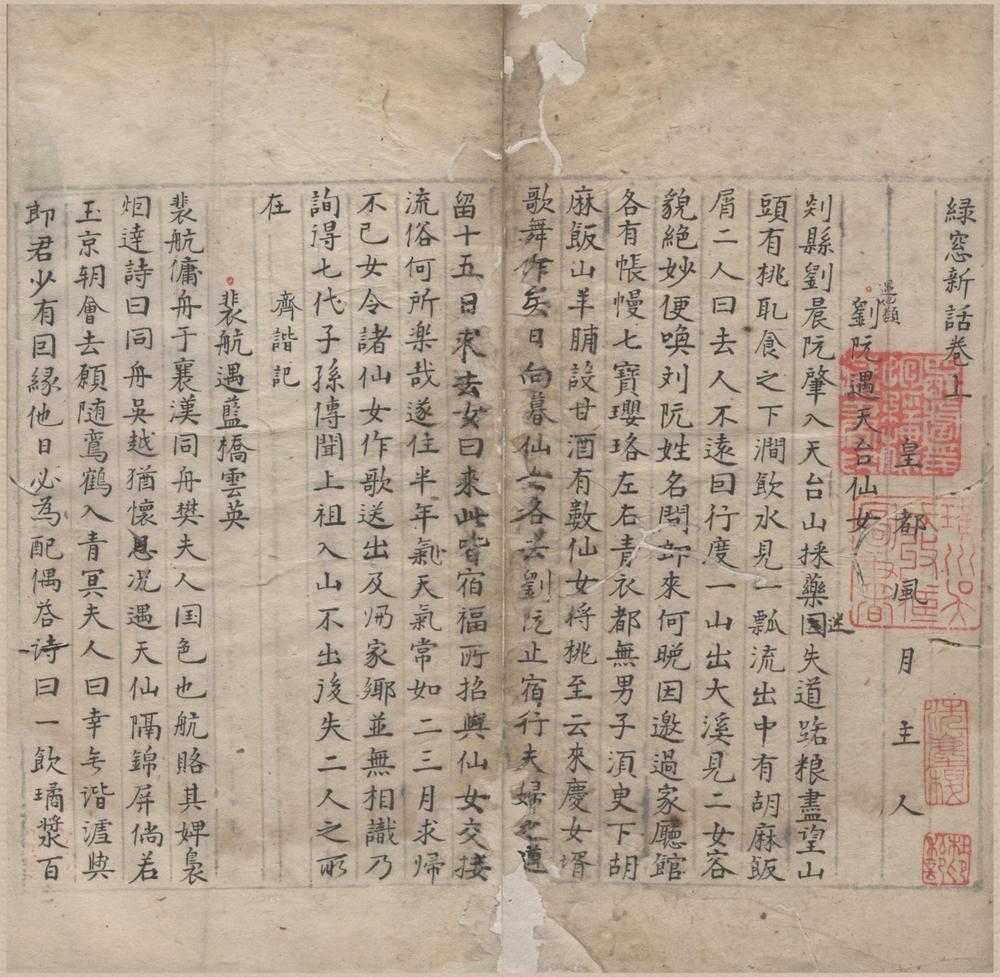 緑窓新話卷上
皇都風月主人
劉阮遇天台仙女
剡縣劉晨阮肇入天台山採藥迷失道路粮盡望山
頭有桃取食之下澗飲水見一瓢流出中有胡麻飯
屑二人曰去人不遠因行度一山出大溪見二女容
貌絶妙便喚刘阮姓名問郎來何晩因邀過家廳館
各有帳幔七寶瓔珞左右青衣都無男子須臾下胡
麻飯山羊脯設甘酒有數仙女將桃至云來慶女壻
歌舞作矣日向暮仙女各去劉阮止宿行夫婦之道
留十五日求去女曰來此皆宿福所招與仙女交接
流俗何所楽哉遂住半年氣天氣常如二三月求帰
不已女令諸仙女作歌送出及帰家鄉並無相識乃
詢得七代子孫傳聞上祖入山不出後失二人之所
在
齊諧記
裴航遇藍橋雲英
裴航傭舟于襄漢同舟樊夫人国色也航賂其婢裊
烟達詩曰同舟吳越猶懷思况遇天仙隔錦屏倘若
玉京朝會去願随鸞鶴入青冥夫人曰幸与諧瀘與
郎君少有因緣他日必為配偶答诗曰一飲瓊漿百